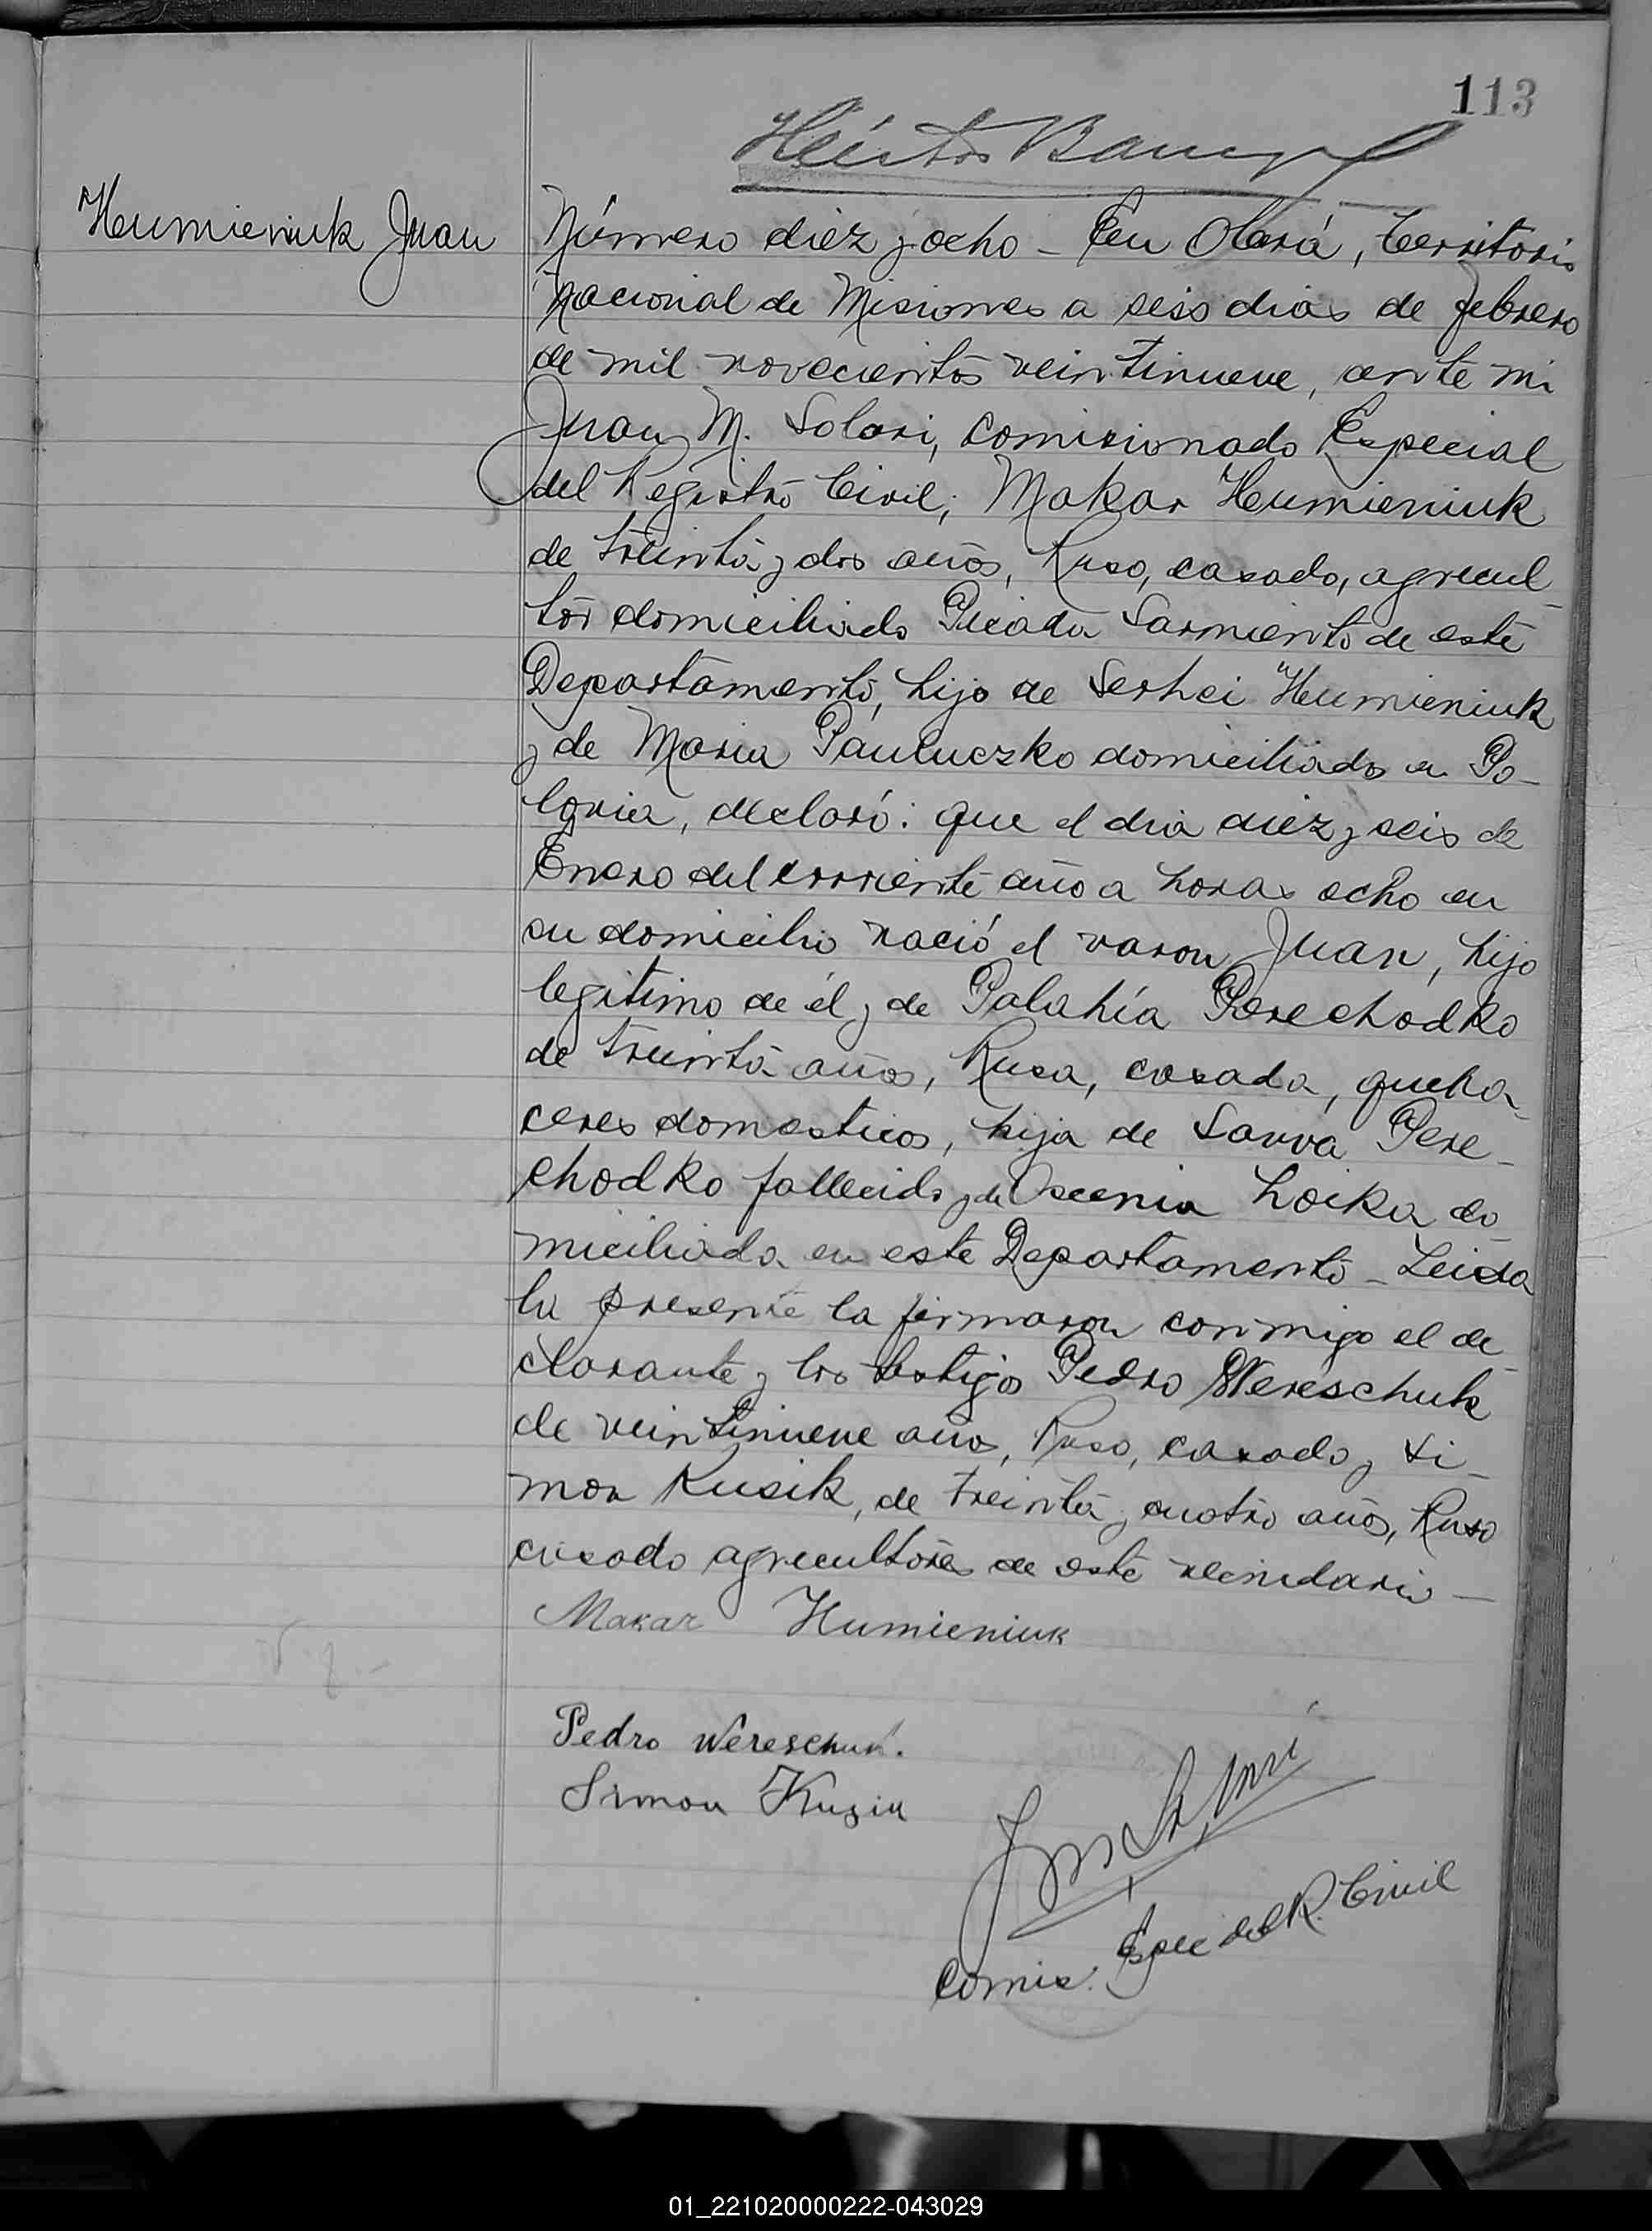 113
Humieniuk Juan
Número diez y ocho - En Oberá, territorio
nacional de Misiones a seis dias de febrero
de mil novecientos veintinueve, ante mi
Juan M. Solari, comisionado Especial
del Registro Civil; Makar Humieniuk
de treinta y dos años, Ruso, casado, agricul-
tor domiciliado Picada Sarmiento de este
Departamento, hijo de Serhei Humieniuk
y de Maria Pauluczko domiciliados en Po-
lonia, declaró: que el dia diez y seis de
Enero del corriente año a horas ocho en
su domicilio nació el varon Juan, hijo
legitimo de él y de Palahía Perechodko
de treinta años, Rusa, casada, queha-
ceres domesticos, hija de Savva Pere-
chodko fallecido y de Oxcenia Loika do-
miciliada en este Departamento - Leida
la presente la firmaron conmigo el de-
clarante y los testigos Pedro Wereschuk
de veintinueve años, Ruso, casado y Si-
mon Kusik, de treinta y cuatro años, Ruso
casado agricultores de este vecindario -
Makar Humieniuk
Pedro Wereschuk.
Simon Kuzik
Comis. Espec del R. Civil
01_221020000222-043029